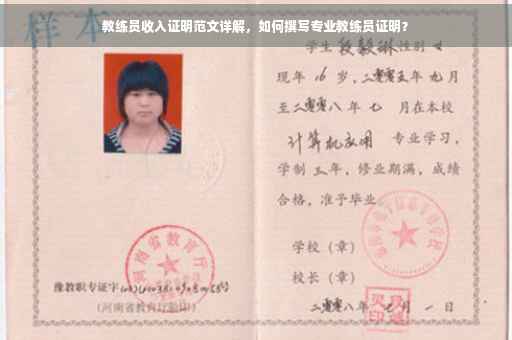 教练员收入证明范文详解，如何撰写专业教练员证明？
样本
学生段毅琳性别女
现年16岁，二零零五年九月
至二零零八年七月在本校
计算机应用 专业学习，
学制三年，修业期满，成绩
合格，准予毕业。
学校（章）
校长（章）
二零零八年七月一日
河南省教育厅
豫教职专证字
(河南省教育厅验印)